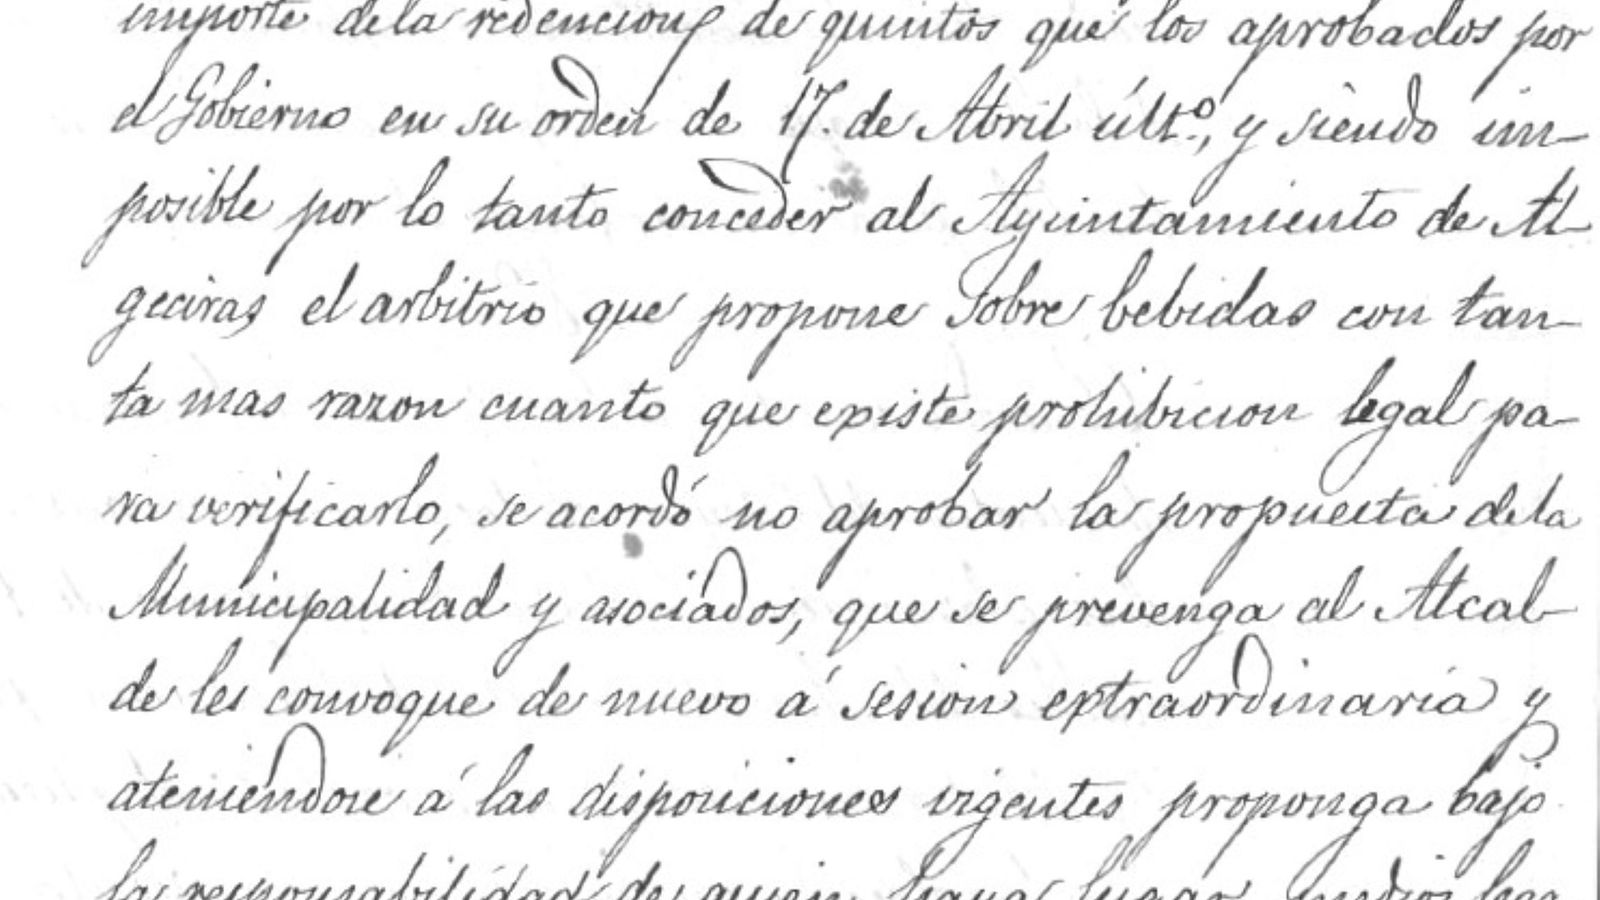 importe dela redencion de quintos que los aprobados por
el Gobierno en su orden de 17. de Abril últº, y siendo im-
posible por lo tanto conceder al Ayuntamiento de Al-
geciras el arbitrio que propone sobre bebidas con tan-
ta mas razon cuanto que existe prohibicion legal pa-
ra verificarlo, se acordó no aprobar la propuesta dela
Municipalidad y asociados, que se prevenga al Alcal-
de les convoque de nuevo á sesion extraordinaria y
ateniendose á las disposiciones vigentes proponga bajo
la responsabilidad de quien haya lugar medios lega